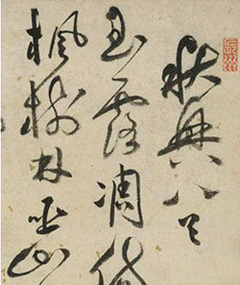 秋興八首
玉露凋傷
楓樹林巫山